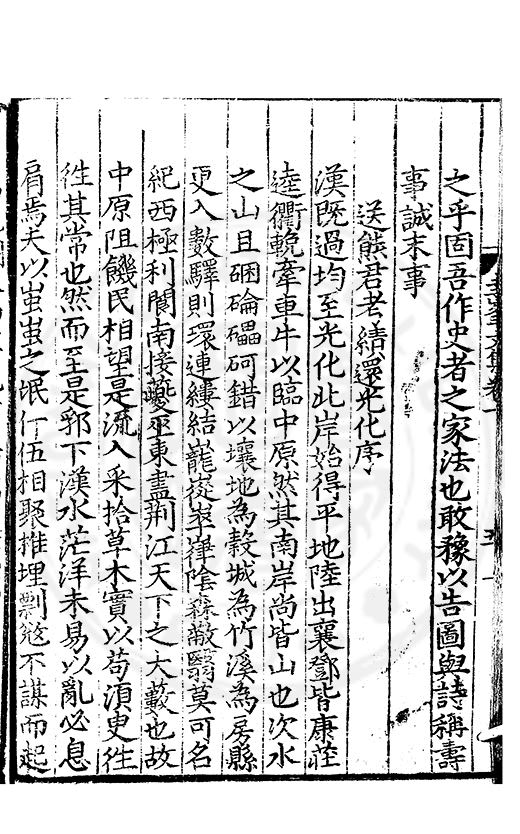 之乎固吾作史者之家法也敢豫以告圖與詩稱壽
事誠末事
送熊君考績還光化序
漢既過均至光化北岸始得平地陸出襄鄧皆康莊
逵衢輓牽車牛以臨中原然其南岸尚皆山也次水
之山且硱磮礧砢錯以壤地為穀城為竹溪為房縣
更入數驛則環連縷結巃嵸崒嵂陰森蔽翳莫可名
紀西極利閬南接夔巫東盡荆江天下之大藪也故
中原阻饑民相望是流入采拾草木實以苟須臾徃
徃其常也然而至是郛下漢水茫洋未易以亂必息
肩焉夫以蚩蚩之氓什伍相聚椎埋剽
不謀而起